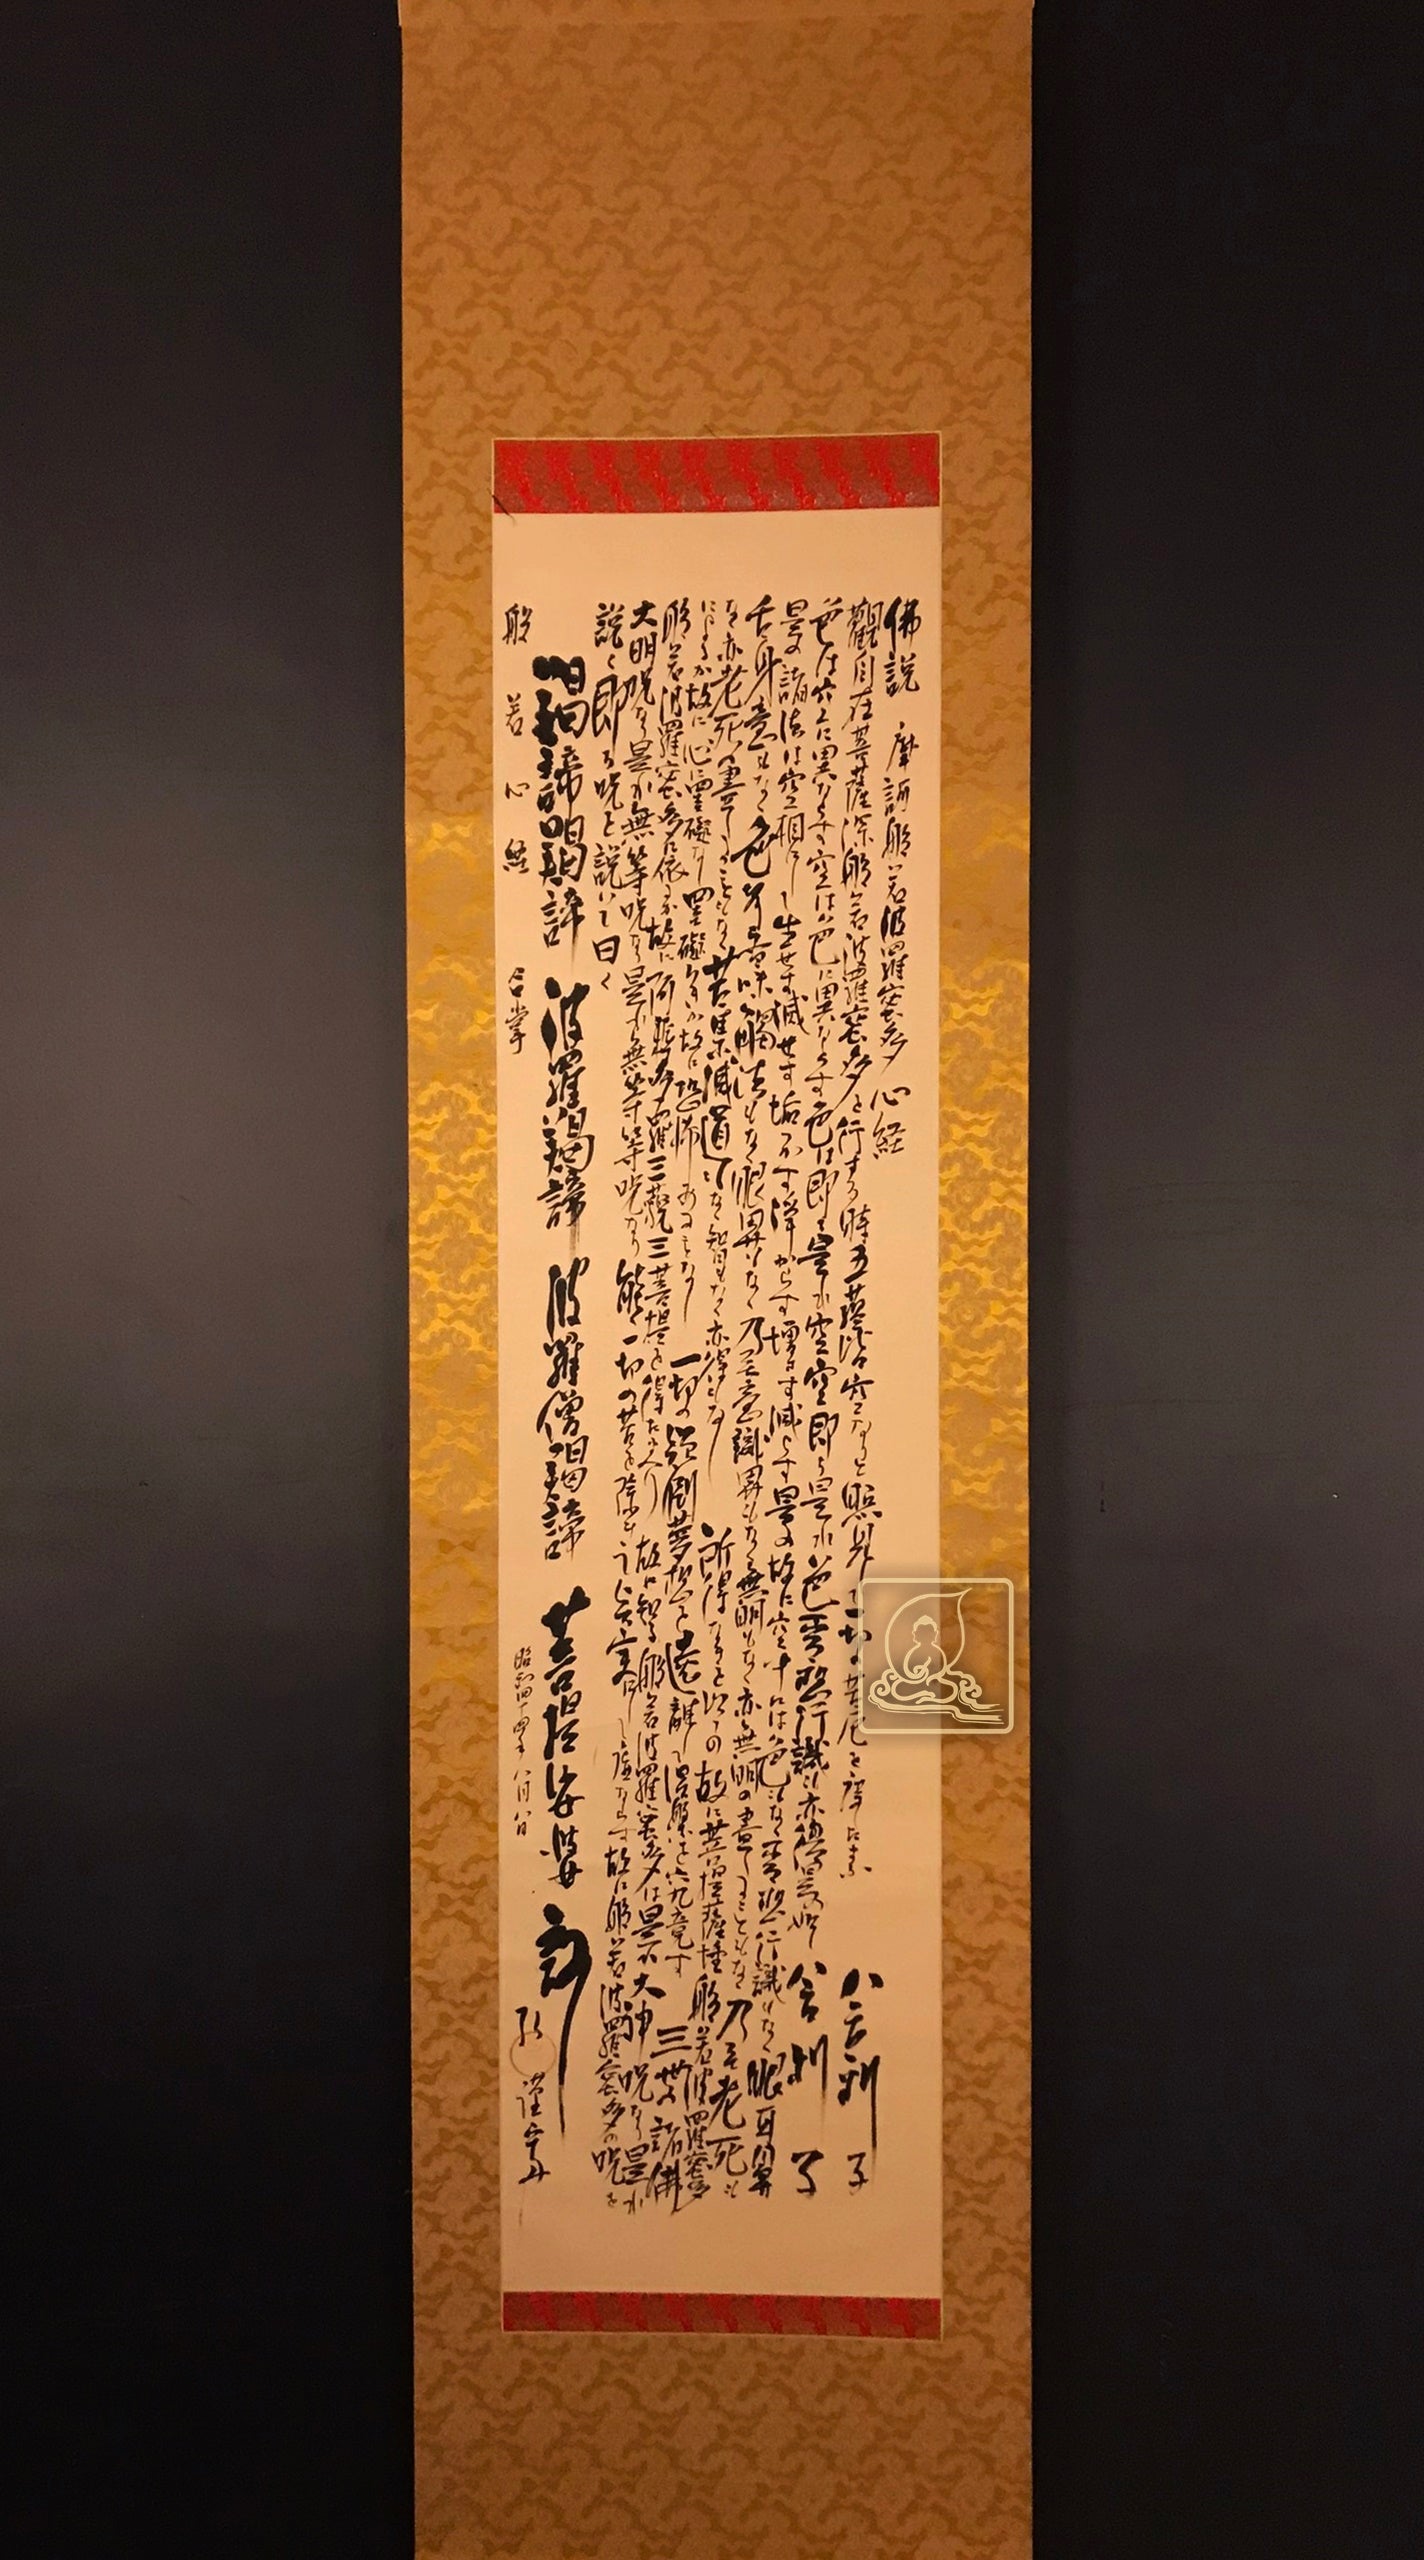 佛説 摩訶般若波羅蜜多心経
觀自在菩薩深般若波羅蜜多を行する時五蘊皆空なりと照見して一切の苦厄を度したまふ 舎利子
色は空に異ならす空は色に異ならす色は即ち是れ空空即ち是れ色受想行識も亦復是の如し 舎利子
是の諸法は空相にして生せす滅せす垢つかす浄からす増さす減らす是の故に空中には色もなく受想行識もなく眼耳鼻
舌身意もなく色声香味觸法もなく眼界もなく乃至意識界もなく無明もなく亦無明の盡くることもなく乃至老死も
なく亦老死の盡くることもなく苦集滅道もなく智もなく亦得もなし 所得なきを以ての故に菩提薩埵般若波羅蜜多
によるか故に心罣礙なし罣礙なきか故に恐怖あることなし 一切の顛倒夢想を遠離して涅槃を究竟す 三世の諸佛
般若波羅蜜多に依るか故に阿耨多羅三藐三菩提を得たまへり 故に知る般若波羅蜜多は是れ大神呪なり是れ
大明呪なり是れ無上呪なり是れ無等等呪なり能く一切の苦を除き真実にして虚ならす故に般若波羅蜜多の呪を
説く即ち呪を説いて曰く
羯諦羯諦 波羅羯諦 波羅僧羯諦 菩提娑婆訶
般若心経 合掌 昭和四十四年八月八日 謹寫